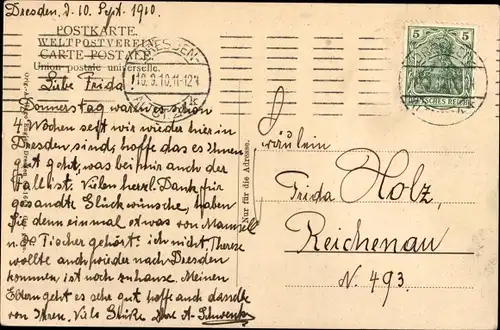 Dresden, d. 10. Sept. 1910.
POSTKARTE.
WELTPOSTVEREIN
CARTE POSTALE.
Union postale universelle.
DRESDEN-
10.9.10.11-12
ALTST.
k
5 5
DEUTSCHES REICH
Liebe Frida
Donnerstag waren es schon
4 Wochen seit wir wieder hier in
Dresden sind, hoffe das es Ihnen
gut geht, was bei mir auch der
Fall ist. Vielen herzl. Dank für
gesandte Glückwünsche, haben
Sie denn einmal etwas von Mamsell
u. Fischer gehört? ich nicht, Therese
wollte auch wieder nach Dresden
kommen, ist noch zuhause. Meinen
Eltern geht es sehr gut hoffe auch dasselbe
von Ihren. Viele Grüße
Nur für die Adresse.
Fräulein
Frida Holz,
Reichenau
N. 493.